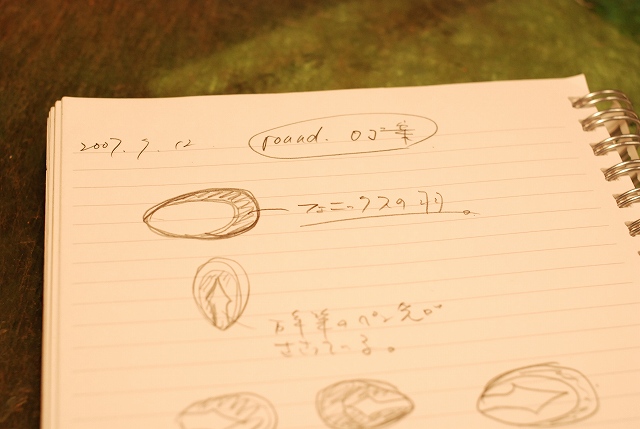 2007.9.12
round. ロゴ案
フェニックスの羽。
万年筆のペン先が
ささっている。